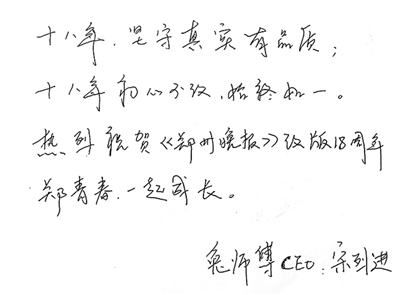 十八年,坚守真实有品质;
十八年初心不改,始终如一。
热烈祝贺《郑州晚报》改版18周年
郑青春,一起成长。
兔师傅CEO:宋列进